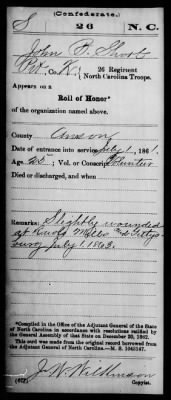 (Confederate.)
S 26 N.C.
John P.
Pvt, Co. K, 26 Regiment
North Carolina Troops.
Appears on a
Roll of Honor*
of the organization named above.
County Anson
Date of entrance into service July 1, 1861.
Age ; Vol. or Conscript Volunteer
Died or discharged, and when
Remarks: Slightly wounded
at Rawls Mills & Gettys
burg July 1 1863.
*Compiled in the Office of the Adjutant General of the State
of North Carolina in accordance with resolutions ratified by
the General Assembly of that State on December 20, 1862.
This card was made from the original record borrowed from
the Adjutant General of North Carolina.—M. S.
J. W. Wilkinson
Copyist.